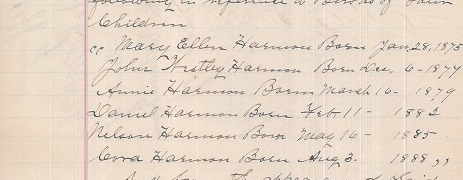 following in reference a Births of their
Children
"Mary Ellen Harmon Born Jan, 28, 1875
John Westley Harmon Born Dec, 6 - 1877
Annie Harmon Born March 16 - 1879
Daniel Harmon Born Feb. 11 - 1882
Nelson Harmon Born May 16 - 1885
Cora Harmon Born Aug 3. 1888 "